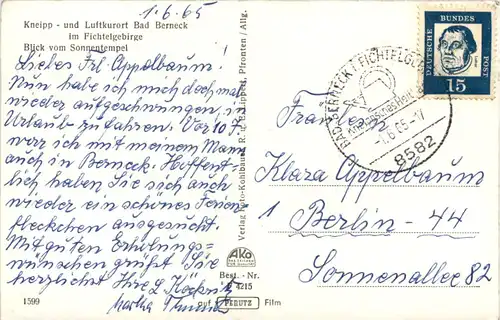 1.6.65
Kneipp - und Luftkurort Bad Berneck
im Fichtelgebirge
Blick vom Sonnentempel
Liebes Frl Appelbaum!
Nun habe ich mich doch mal
wieder aufgeschwungen, in
Urlaub zu fahren. Vor 10 J.
war ich mit meinem Mann
auch in Berneck. Hoffent-
lich haben Sie sich auch
wieder ein schönes Ferien-
fleckchen ausgesucht.
Mit guten Erholungs-
wünschen grüßt Sie
herzlichst Ihre L
Martha
1599
Verlag Foto-Kohlbauer, Pfronten / Allg.
AKO
Best.-Nr.
4215
auf PERUTZ Film
DEUTSCHE BUNDES
POST
15
BAD BERNECK I FICHTELGEB
-1.6.65-17
8582
Fräulein
Klara Appelbaum
1 Berlin - 44
Sonnenallee 82